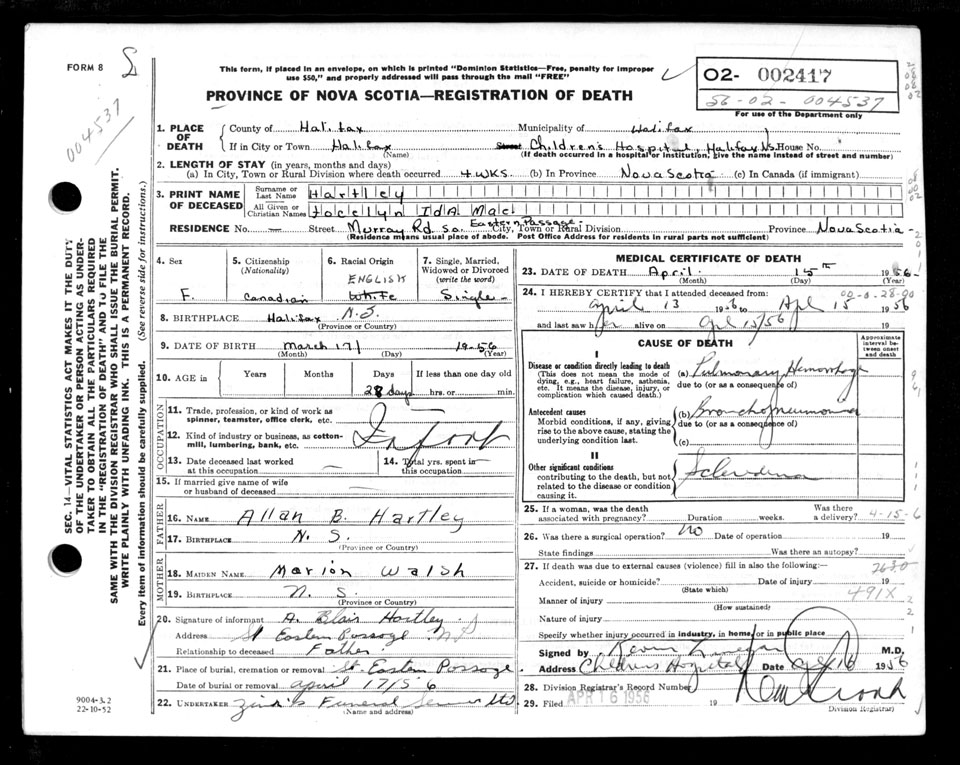 FORM 8
This form, if placed in an envelope, on which is printed "Dominion Statistics—Free, penalty for improper
use $50," and properly addressed will pass through the mail "FREE"
PROVINCE OF NOVA SCOTIA—REGISTRATION OF DEATH
02- 002417
56-02-004537
For use of the Department only
004537
1. PLACE OF DEATH
County of Halifax Municipality of Halifax
If in City or Town Halifax Street Children's Hospital, Halifax N.S. House No.
(Name) (If death occurred in a hospital or institution, give the name instead of street and number)
2. LENGTH OF STAY (in years, months and days)
(a) In City, Town or Rural Division where death occurred 4 WKS (b) In Province Nova Scotia (c) In Canada (if immigrant)
3. PRINT NAME OF DECEASED
Surname or Last Name Hartley
All Given or Christian Names Jocelyn IdA Mae
RESIDENCE No. — Street Murray Rd. So. Eastern Passage City, Town or Rural Division Province Nova Scotia
(Residence means usual place of abode. Post Office Address for residents in rural parts not sufficient)
4. Sex
F.
5. Citizenship
(Nationality)
Canadian
6. Racial Origin
ENGLISH
White
7. Single, Married,
Widowed or Divorced
(write the word)
Single
8. BIRTHPLACE Halifax N.S.
(Province or Country)
9. DATE OF BIRTH March 17 1956
(Month) (Day) (Year)
10. AGE in Years Months Days If less than one day old
28 days hrs. or min.
OCCUPATION
11. Trade, profession, or kind of work as
spinner, teamster, office clerk, etc.
12. Kind of industry or business, as cotton-
mill, lumbering, bank, etc.
Infant
13. Date deceased last worked
at this occupation —
14. Total yrs. spent in
this occupation —
15. If married give name of wife
or husband of deceased —
FATHER
16. NAME Allan B. Hartley
17. BIRTHPLACE N. S.
(Province or Country)
MOTHER
18. MAIDEN NAME Marion Walsh
19. BIRTHPLACE N. S.
(Province or Country)
20. Signature of informant A. Blair Hartley
Address St Eastern Passage N.S
Relationship to deceased Father.
21. Place of burial, cremation or removal St. Eastern Passage.
Date of burial or removal April 17/56
22. UNDERTAKER Zink's Funeral Service Ltd
(Name and address)
MEDICAL CERTIFICATE OF DEATH
23. DATE OF DEATH April 15th 1956
(Month) (Day) (Year)
24. I HEREBY CERTIFY that I attended deceased from:
April 13 1956 to Apl 15 1956
and last saw her alive on Apl 15/56 19
CAUSE OF DEATH
Approximate interval between onset and death
I
Disease or condition directly leading to death
(This does not mean the mode of
dying, e.g., heart failure, asthenia,
etc. It means the disease, injury, or
complication which caused death.)
(a) Pulmonary Hemorrhage
due to (or as a consequence of)
Antecedent causes
Morbid conditions, if any, giving
rise to the above cause, stating the
underlying condition last.
(b) Bronchopneumonia
due to (or as a consequence of)
(c)
II
Other significant conditions
contributing to the death, but not
related to the disease or condition
causing it.
Sclerema
25. If a woman, was the death
associated with pregnancy? Duration weeks. Was there a delivery?
4-15-6
26. Was there a surgical operation? No Date of operation 19
State findings Was there an autopsy?
27. If death was due to external causes (violence) fill in also the following:—
2680
Accident, suicide or homicide? Date of injury 19
(State which)
491X
Manner of injury
(How sustained)
Nature of injury
Specify whether injury occurred in industry, in home, or in public place
Signed by M.D.
Address Childrens Hospital Date Apl 16 1956
28. Division Registrar's Record Number
29. Filed APR 16 1956 19
Division Registrar)
9004-3.2
22-10-52
SEC. 14—VITAL STATISTICS ACT MAKES IT THE DUTY
OF THE UNDERTAKER OR PERSON ACTING AS UNDER-
TAKER TO OBTAIN ALL THE PARTICULARS REQUIRED
IN THE "REGISTRATION OF DEATH" AND TO FILE THE
SAME WITH THE DIVISION REGISTRAR WHO SHALL ISSUE THE BURIAL PERMIT.
WRITE PLAINLY WITH UNFADING INK. THIS IS A PERMANENT RECORD.
Every item of information should be carefully supplied. (See reverse side for instructions.)